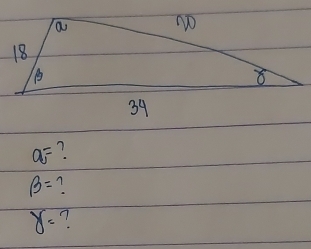 α 20
18
β γ
34
α=?
β=?
γ=?